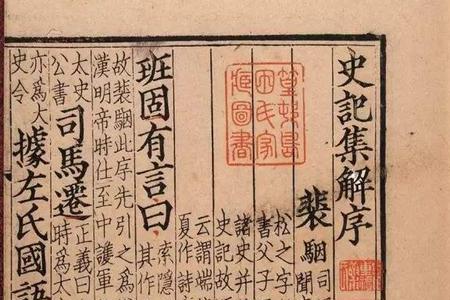 史記集解序
篁邨島
田氏家
藏圖書
裴駰
司
聞
松之字
書父子
諸史并
史記故
云謂端
夏作詩
班固有言曰
索隱
其作
故裴駰此序先引之為
漢明帝時仕至中護軍
太史
公書
司馬遷
正義曰
時為太
亦為太
史令
據左氏國語